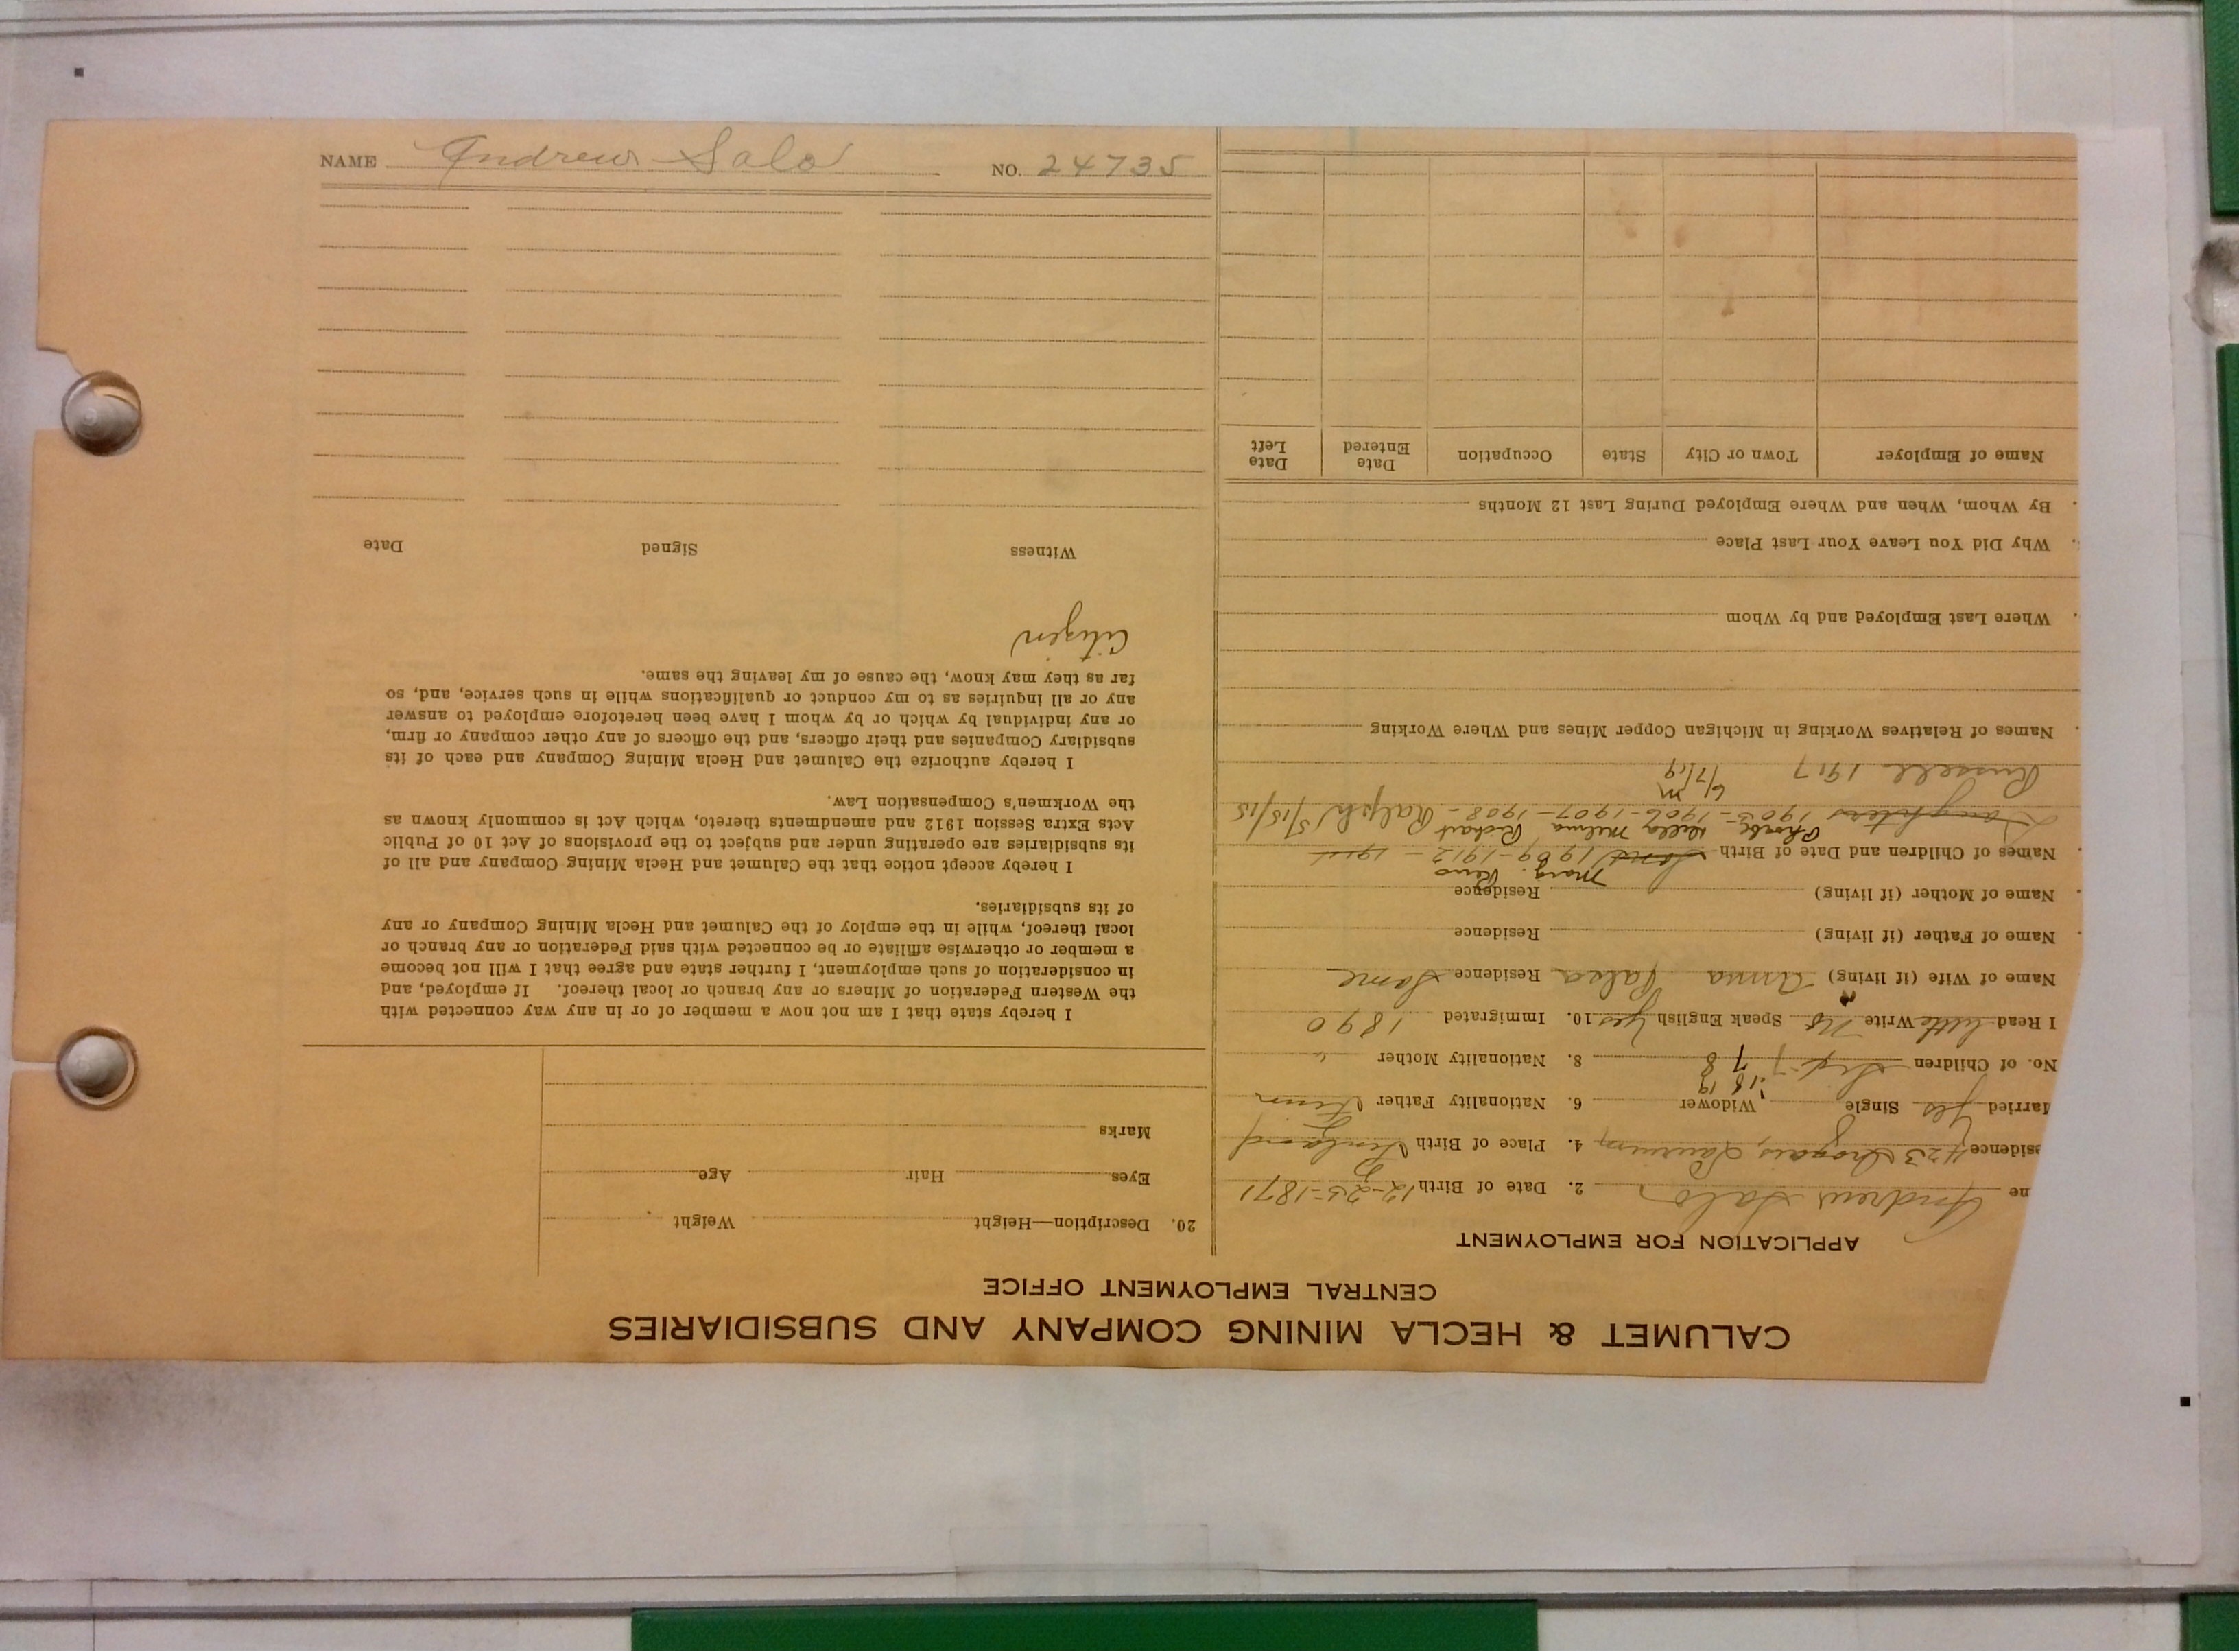 CALUMET & HECLA MINING COMPANY AND SUBSIDIARIES
CENTRAL EMPLOYMENT OFFICE
APPLICATION FOR EMPLOYMENT
me Andrew Salo 2. Date of Birth 12-25-1871
esidence 423 Iroquois, Laurium 4. Place of Birth Finland
Married Yes Single Widower 6. Nationality Father Finn
18 19
No. of Children Six 7 7 8 8. Nationality Mother "
I Read little Write No Speak English Yes 10. Immigrated 1890
Name of Wife (if living) Anna Residence Same
Name of Father (if living) Residence
Name of Mother (if living) Residence
Marg. Reno
Names of Children and Date of Birth Sons 1909-1912-1911
Hilla Milma Richart
Daughters 1903-1906-1907-1908- Ralph 5/15/15
Russell 1917 M 6/7/19
Names of Relatives Working in Michigan Copper Mines and Where Working
Where Last Employed and by Whom
Why Did You Leave Your Last Place
By Whom, When and Where Employed During Last 12 Months
Name of Employer Town or City State Occupation Date Entered Date Left
20. Description—Height Weight
Eyes Hair Age
Marks
I hereby state that I am not now a member of or in any way connected with
the Western Federation of Miners or any branch or local thereof. If employed, and
in consideration of such employment, I further state and agree that I will not become
a member or otherwise affiliate or be connected with said Federation or any branch or
local thereof, while in the employ of the Calumet and Hecla Mining Company or any
of its subsidiaries.
I hereby accept notice that the Calumet and Hecla Mining Company and all of
its subsidiaries are operating under and subject to the provisions of Act 10 of Public
Acts Extra Session 1912 and amendments thereto, which Act is commonly known as
the Workmen's Compensation Law.
I hereby authorize the Calumet and Hecla Mining Company and each of its
subsidiary Companies and their officers, and the officers of any other company or firm,
or any individual by which or by whom I have been heretofore employed to answer
any or all inquiries as to my conduct or qualifications while in such service, and, so
far as they may know, the cause of my leaving the same.
Citizen
Witness Signed Date
NAME Andrew Salo NO. 24735